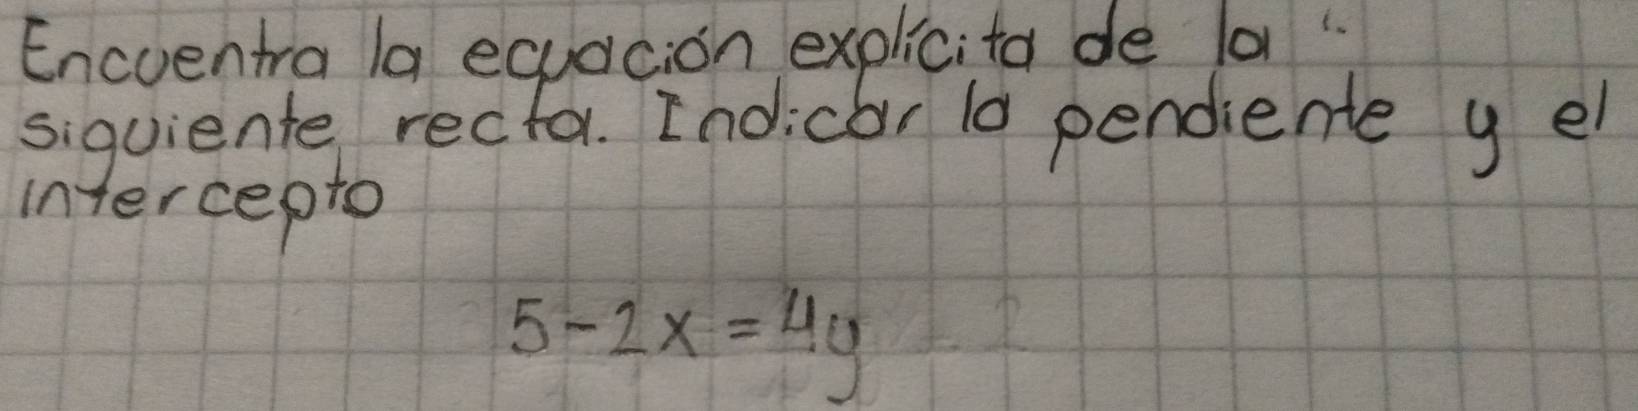 Encuentra la ecuación explícita de la
siguiente recta. Indicar la pendiente y el
intercepto
5-2x=4y